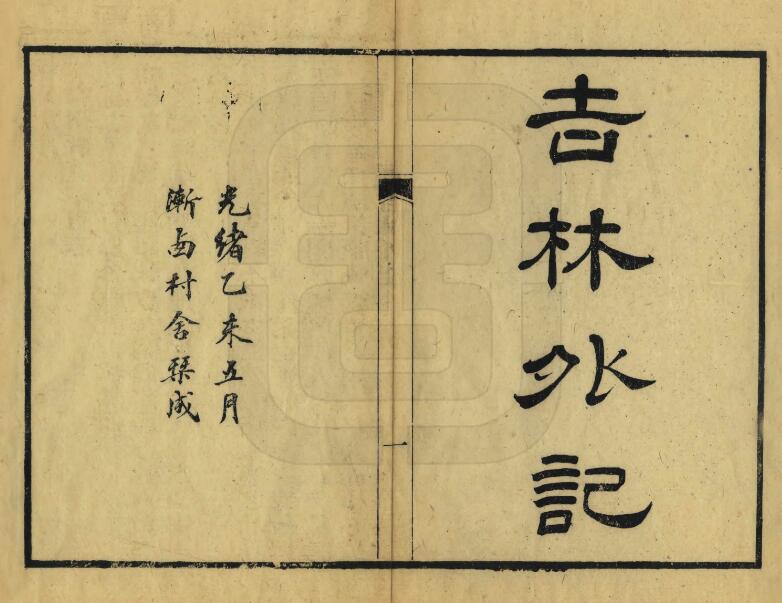 吉林外記
一
光緒乙未五月
漸西村舍栞成